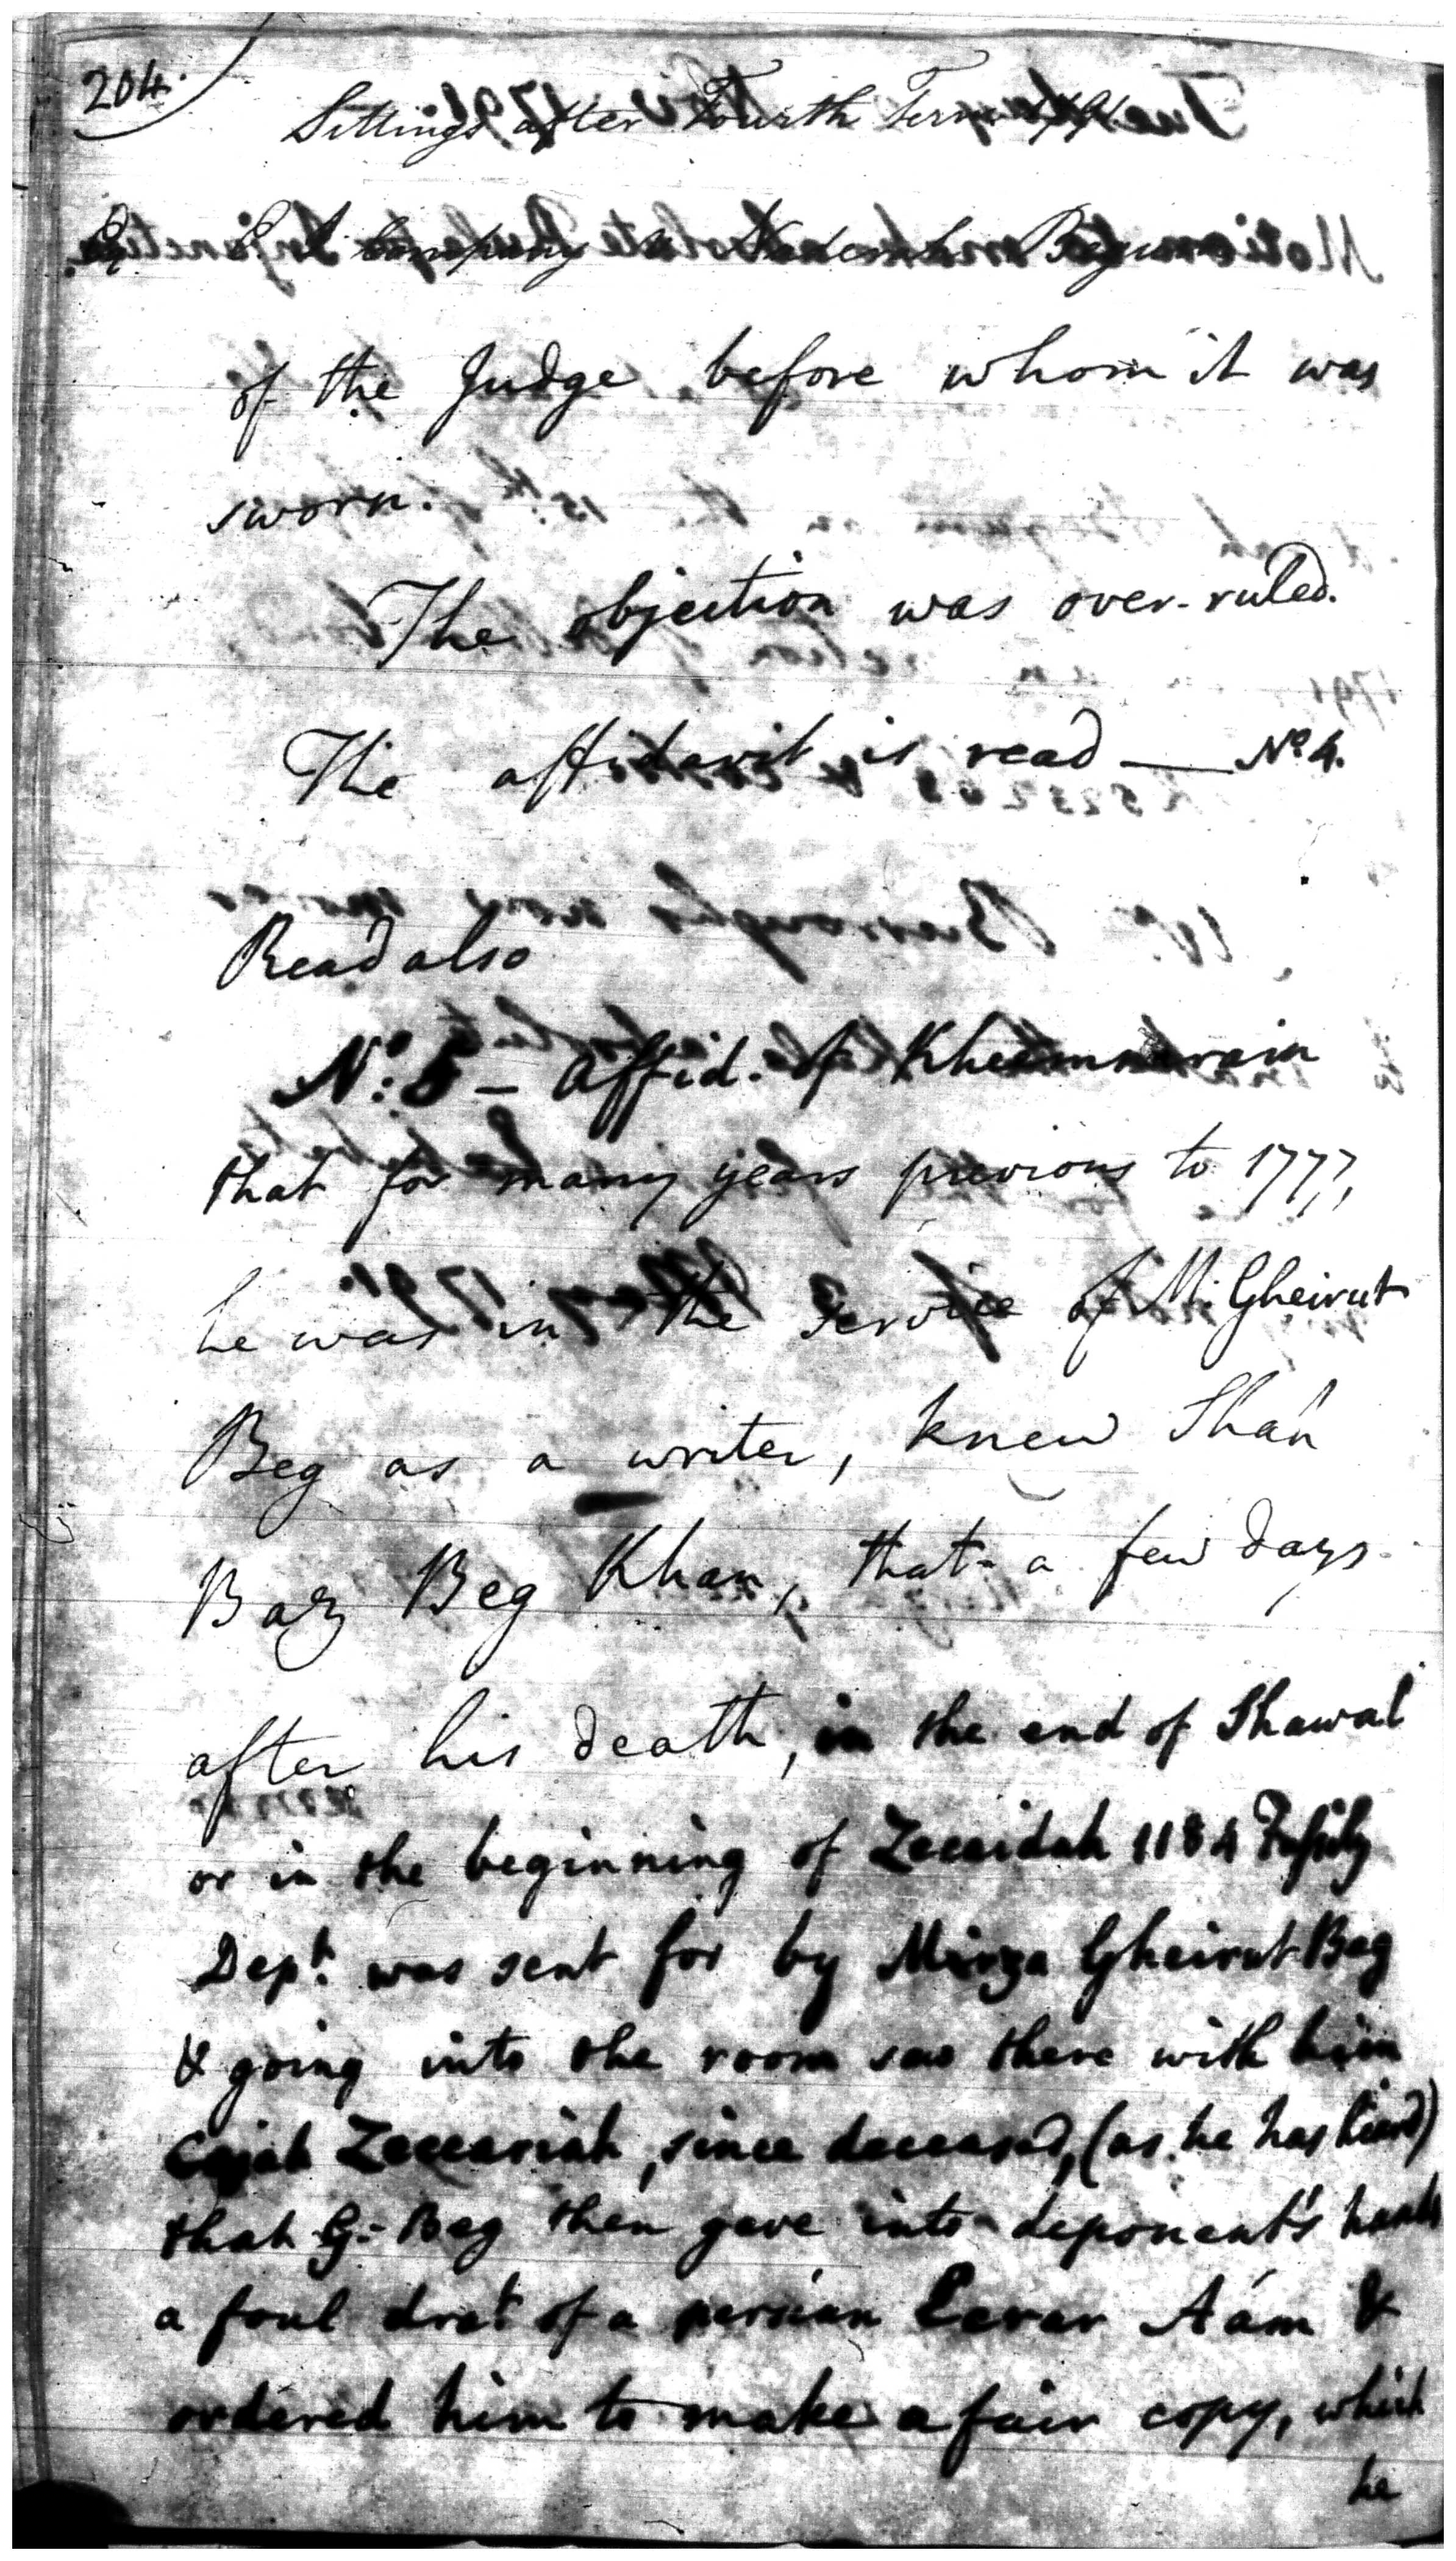 204.
Sittings after Fourth Term 1791
E. I. Company Begum
of the Judge before whom it was
sworn.
The objection was over-ruled.
The affidavit is read — No 4.
Read also
No: 5 - Affid. of Kheemnarain
that for many years previous to 1777,
he was in the service of M. Gheirut
Beg as a writer, knew Shah
Baz Beg Khan, that a few days
after his death, in the end of Shawal
or in the beginning of Zecaidah 1184 Fussily
Dept. was sent for by Mirza Gheirut Beg
& going into the room saw there with him
Cojah Zeccariah, since deceased, (as he has heard)
that G. Beg then gave into deponent's hands
a foul drat of a persian Ecrar Aám &
ordered him to make a fair copy, which
he